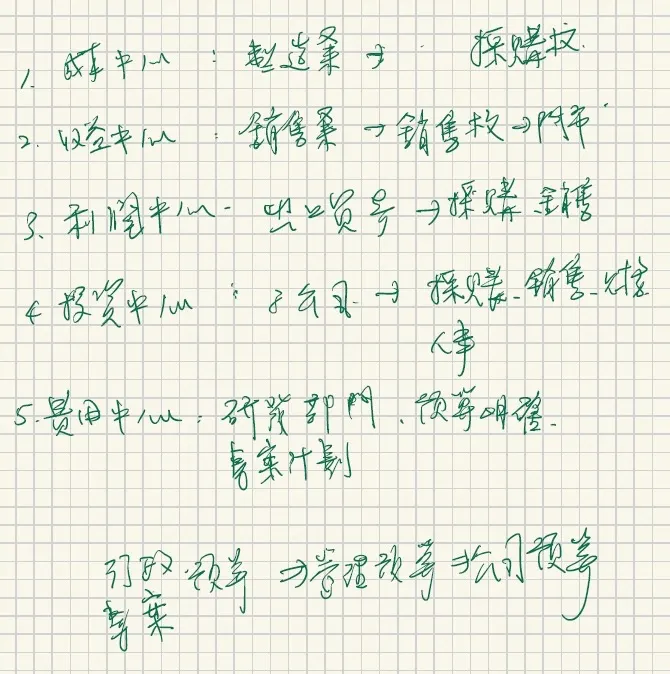 1. 成本中心：製造業 → 採購校
2. 收益中心：銷售業 → 銷售校 → 門市
3. 利潤中心 - 出口貿易 → 採購 銷售
4 投資中心：子公司 → 採購、銷售、財務
人事
5. 費用中心：研發部門、預算明確
專案計劃
引致 預算 → 管理預算 → 公司預算
專案